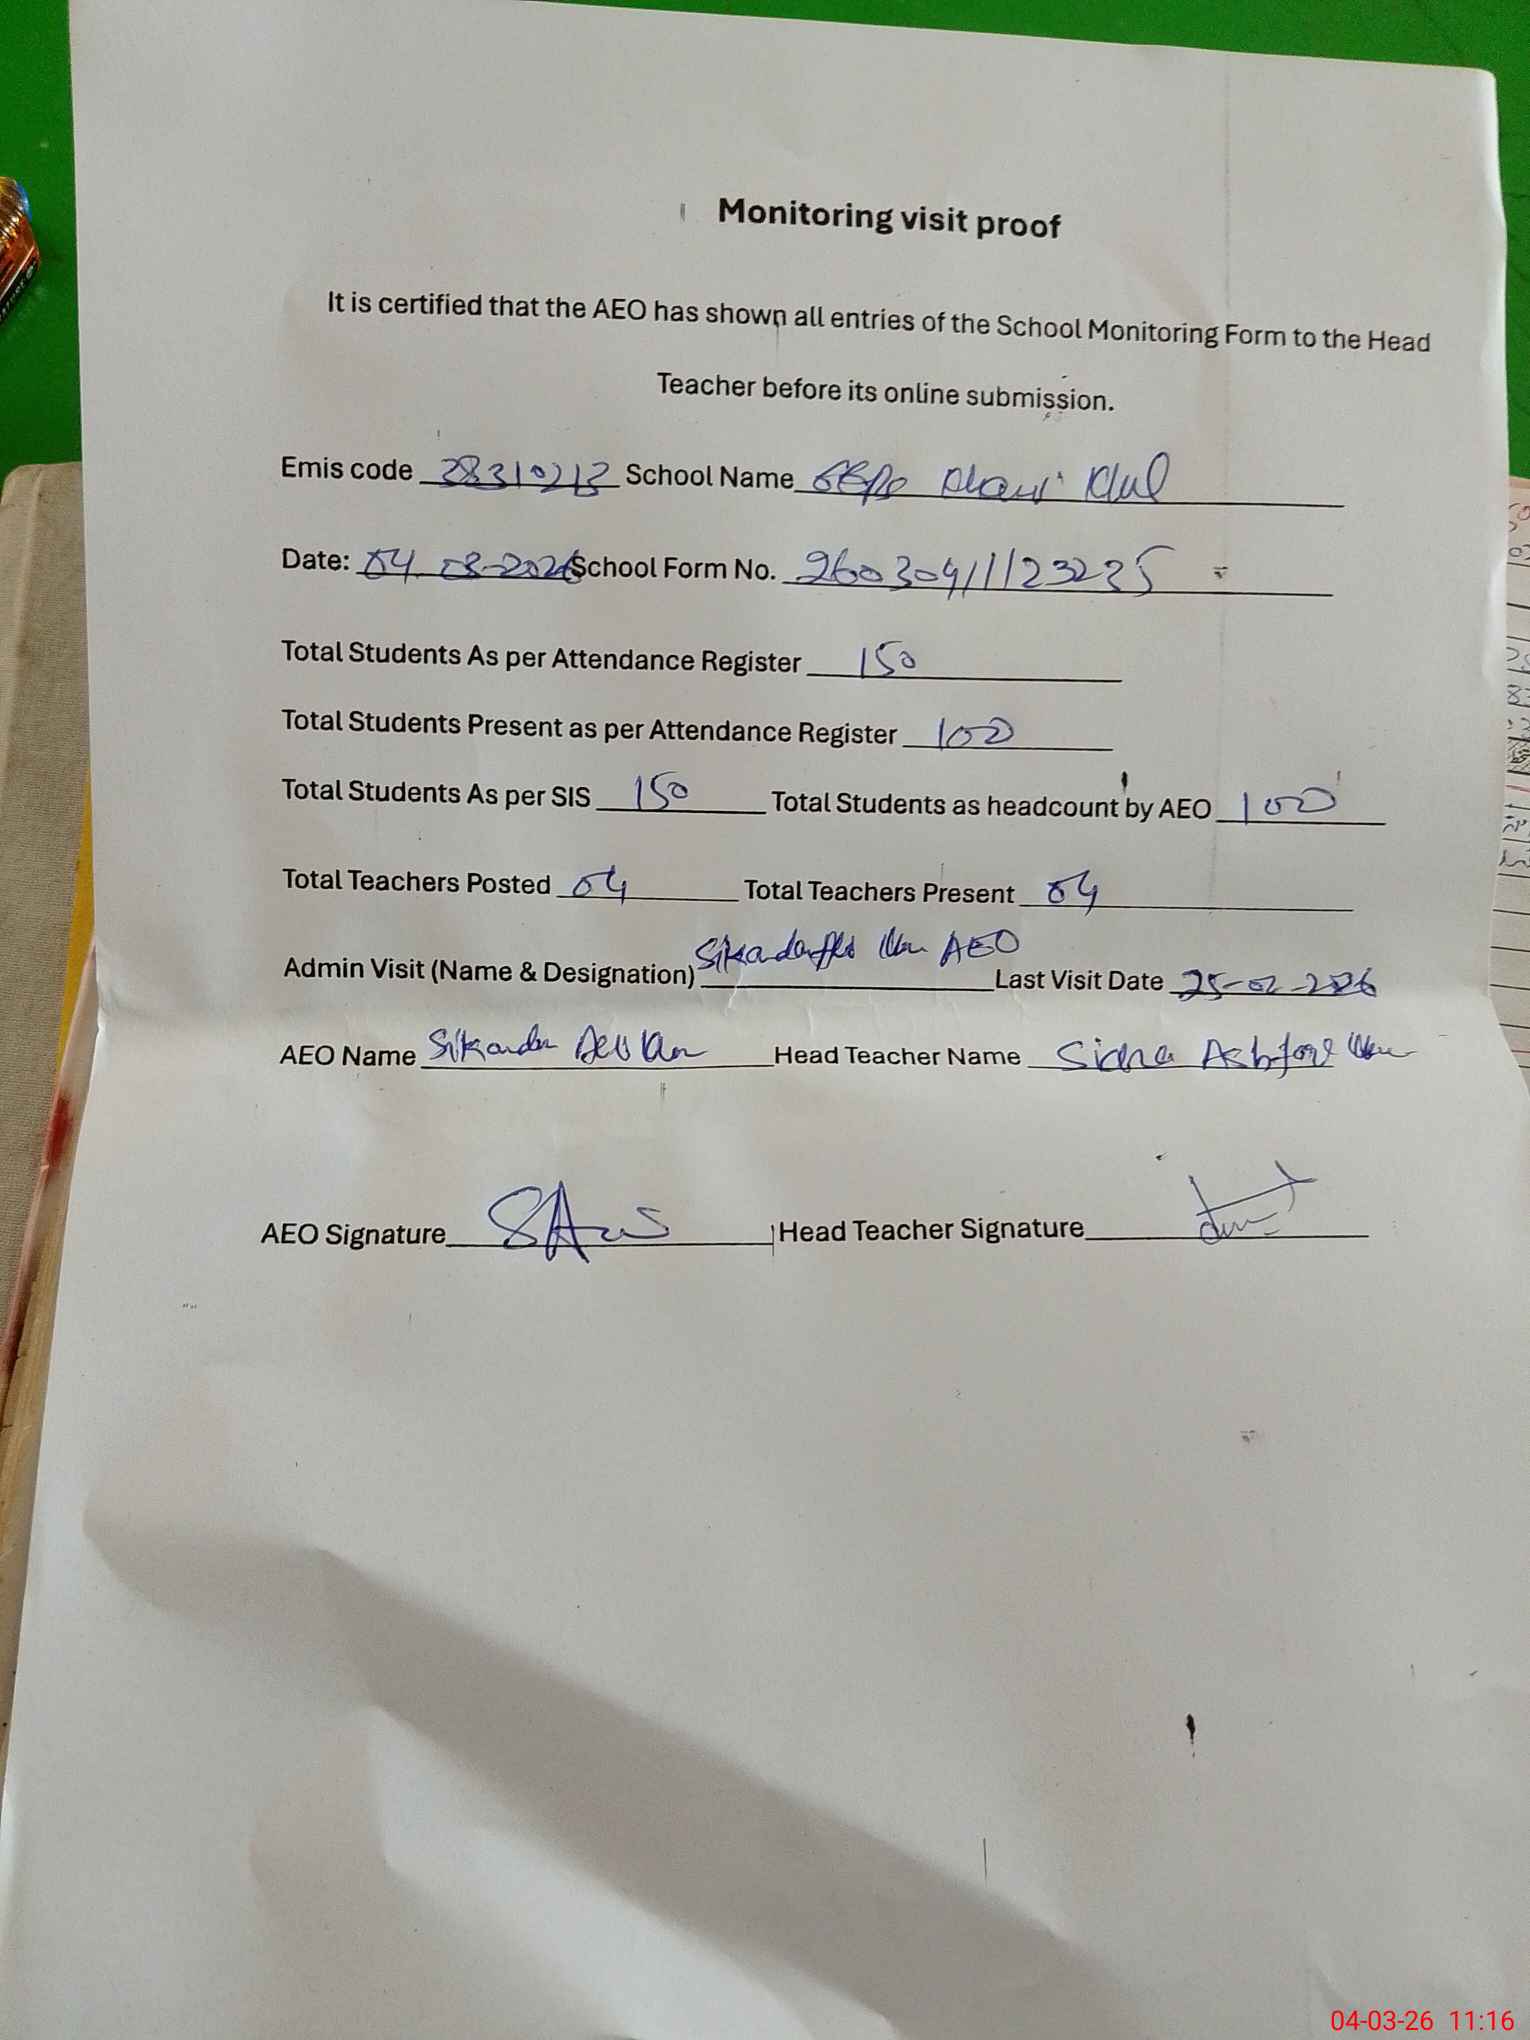 Monitoring visit proof
It is certified that the AEO has shown all entries of the School Monitoring Form to the Head
Teacher before its online submission.
Emis code 38310213 School Name
Date: 04-03-2026 School Form No. 26030411123235
Total Students As per Attendance Register 150
Total Students Present as per Attendance Register 100
Total Students As per SIS 150 Total Students as headcount by AEO 100
Total Teachers Posted 04 Total Teachers Present 04
Admin Visit (Name & Designation) AEO Last Visit Date 25-02-2026
AEO Name Sikandar Head Teacher Name
AEO Signature Head Teacher Signature
04-03-26 11:16